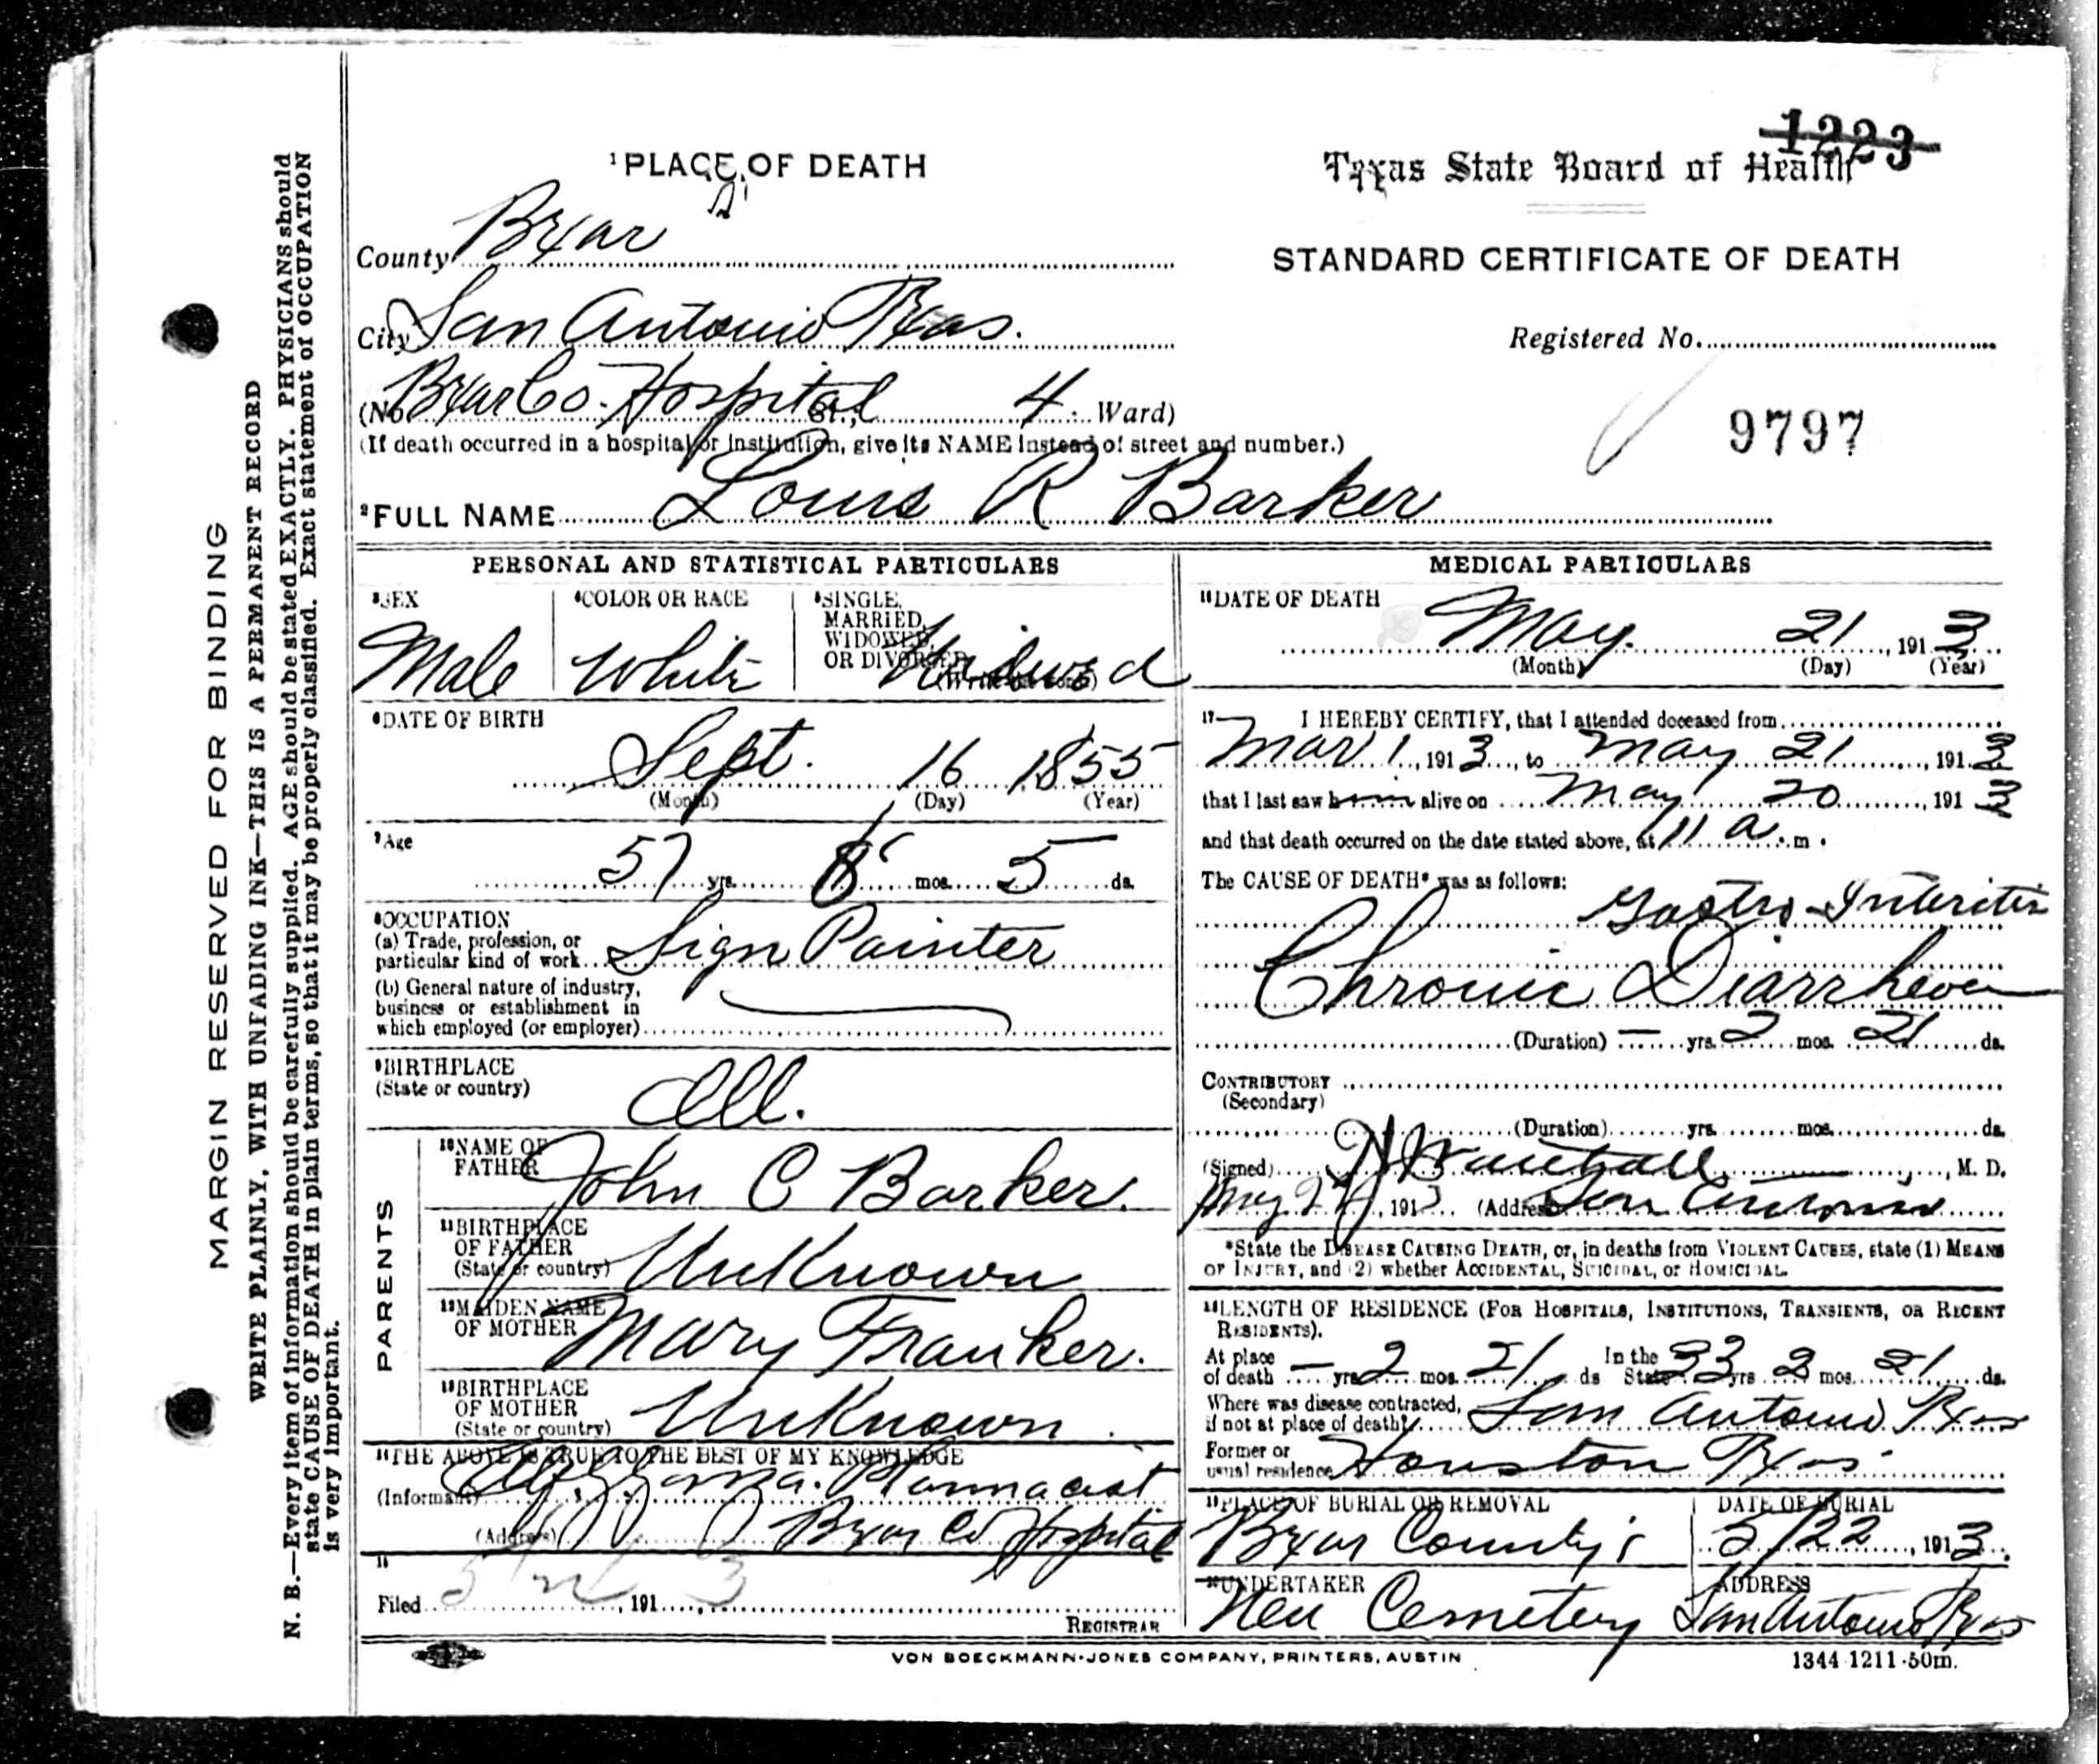 MARGIN RESERVED FOR BINDING
WRITE PLAINLY, WITH UNFADING INK—THIS IS A PERMANENT RECORD
N. B.—Every item of information should be carefully supplied. AGE should be stated EXACTLY. PHYSICIANS should
state CAUSE OF DEATH in plain terms, so that it may be properly classified. Exact statement of OCCUPATION
is very important.
1223
1 PLACE OF DEATH
Texas State Board of Health
County Bexar
STANDARD CERTIFICATE OF DEATH
City San Antonio Texas.
Registered No.
(No. Bexar Co. Hospital St., 4 Ward)
9797
(If death occurred in a hospital or institution, give its NAME instead of street and number.)
2 FULL NAME Louis R Barker
PERSONAL AND STATISTICAL PARTICULARS
3 SEX
Male
4 COLOR OR RACE
White
5 SINGLE,
MARRIED,
WIDOWED,
OR DIVORCED
(Write the word)
Widowed
6 DATE OF BIRTH
Sept. 16, 1855
(Month) (Day) (Year)
7 Age
57 yrs. 8 mos. 5 ds.
8 OCCUPATION
(a) Trade, profession, or
particular kind of work Sign Painter
(b) General nature of industry,
business or establishment in
which employed (or employer)
9 BIRTHPLACE
(State or country) Ill.
PARENTS
10 NAME OF
FATHER John C Barker.
11 BIRTHPLACE
OF FATHER
(State or country) Unknown
12 MAIDEN NAME
OF MOTHER Mary Franker.
13 BIRTHPLACE
OF MOTHER
(State or country) Unknown.
14 THE ABOVE IS TRUE TO THE BEST OF MY KNOWLEDGE
(Informant) Pharmacist
(Address) Bexar Co Hospital
15
Filed 5 22, 191 3
REGISTRAR
MEDICAL PARTICULARS
16 DATE OF DEATH
May. 21, 1913
(Month) (Day) (Year)
17 I HEREBY CERTIFY, that I attended deceased from
Mar 1, 1913, to May 21, 1913
that I last saw him alive on May 20, 1913
and that death occurred on the date stated above, at 11 a.m.
The CAUSE OF DEATH* was as follows:
Gastro-Interitis
Chronic Diarrhoea
(Duration) — yrs. 2 mos. 21 ds.
CONTRIBUTORY
(Secondary)
(Duration) yrs. mos. ds.
(Signed) , M. D.
May, 191 (Address) San Antonio
*State the DISEASE CAUSING DEATH, or, in deaths from VIOLENT CAUSES, state (1) MEANS
OF INJURY, and (2) whether ACCIDENTAL, SUICIDAL, or HOMICIDAL.
18 LENGTH OF RESIDENCE (FOR HOSPITALS, INSTITUTIONS, TRANSIENTS, OR RECENT
RESIDENTS).
At place of death — yrs. 2 mos. 21 ds In the State 33 yrs 2 mos. 21 ds.
Where was disease contracted,
if not at place of death? San Antonio Texas
Former or
usual residence Houston Texas
19 PLACE OF BURIAL OR REMOVAL
Bexar County's
DATE OF BURIAL
5/22, 1913.
20 UNDERTAKER
New Cemetery
ADDRESS
San Antonio Texas
VON BOECKMANN-JONES COMPANY, PRINTERS, AUSTIN
1344-1211-50m.